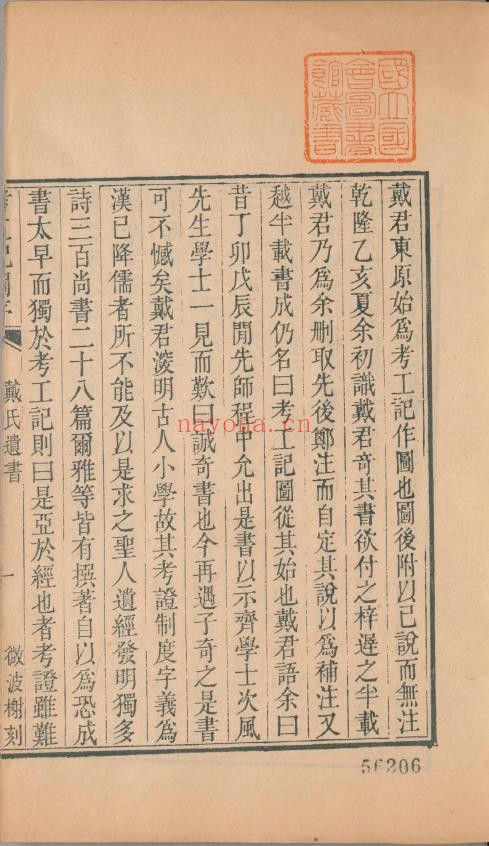 國立國
會圖書
館藏書
戴君東原始爲考工記作圖也圖後附以己說而無注
乾隆乙亥夏余初識戴君奇其書欲付之梓遲之半載
戴君乃爲余刪取先後鄭注而自定其說以爲補注又
越半載書成仍名曰考工記圖從其始也戴君語余曰
昔丁卯戊辰閒先師程中允出是書以示齊學士次風
先生學士一見而歎曰誠奇書也今再遇子奇之是書
可不憾矣戴君深明古人小學故其考證制度字義爲
漢已降儒者所不能及以是求之聖人遺經發明獨多
詩三百尚書二十八篇爾雅等皆有撰著自以爲恐成
書太早而獨於考工記則曰是亞於經也者考證雖難
戴氏遺書
一
微波榭刻
56206
nayona.cn